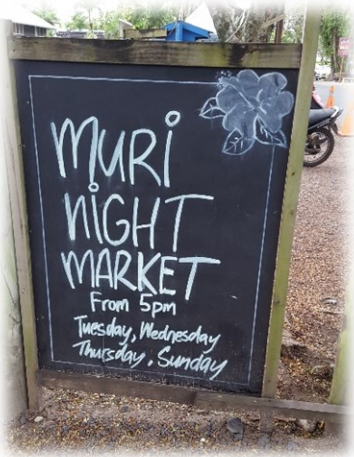 MURI
NiGHT
MARKET
From 5pm
Tuesday, Wednesday
Thursday, Sunday